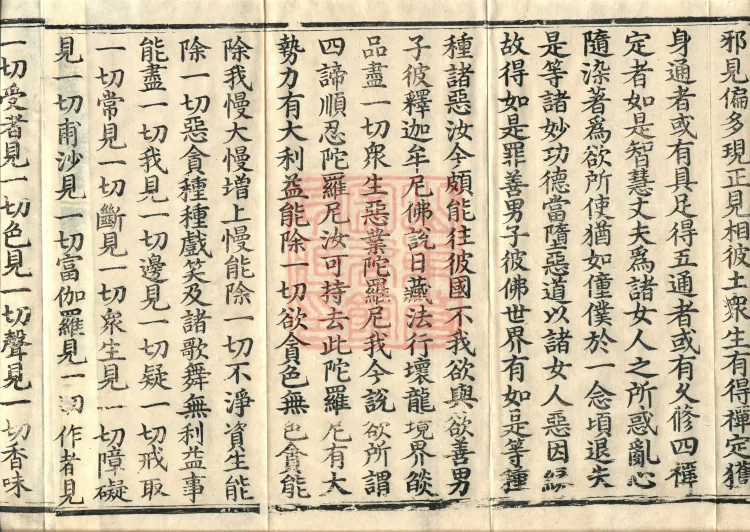 邪見偏多現正見相彼土衆生有得禪定獲
身通者或有具足得五通者或有久修四禪
定者如是智慧丈夫爲諸女人之所惑亂心
隨染著爲欲所使猶如僮僕於一念頃退失
是等諸妙功德當墮惡道以諸女人惡因緣
故得如是罪善男子彼佛世界有如是等種
種諸惡汝今頗能往彼國不我欲與欲善男
子彼釋迦牟尼佛說日藏法行壞龍境界燄
品盡一切衆生惡業陀羅尼我今說欲所謂
四諦順忍陀羅尼汝可持去此陀羅尼有大
勢力有大利益能除一切欲貪色無色貪能
除我慢大慢增上慢能除一切不淨資生能
除一切惡貪種種戲笑及諸歌舞無利益事
能盡一切我見一切邊見一切疑一切戒取
一切常見一切斷見一切衆生見一切障礙
見一切甫沙見一切富伽羅見一切作者見
一切受者見一切色見一切聲見一切香味